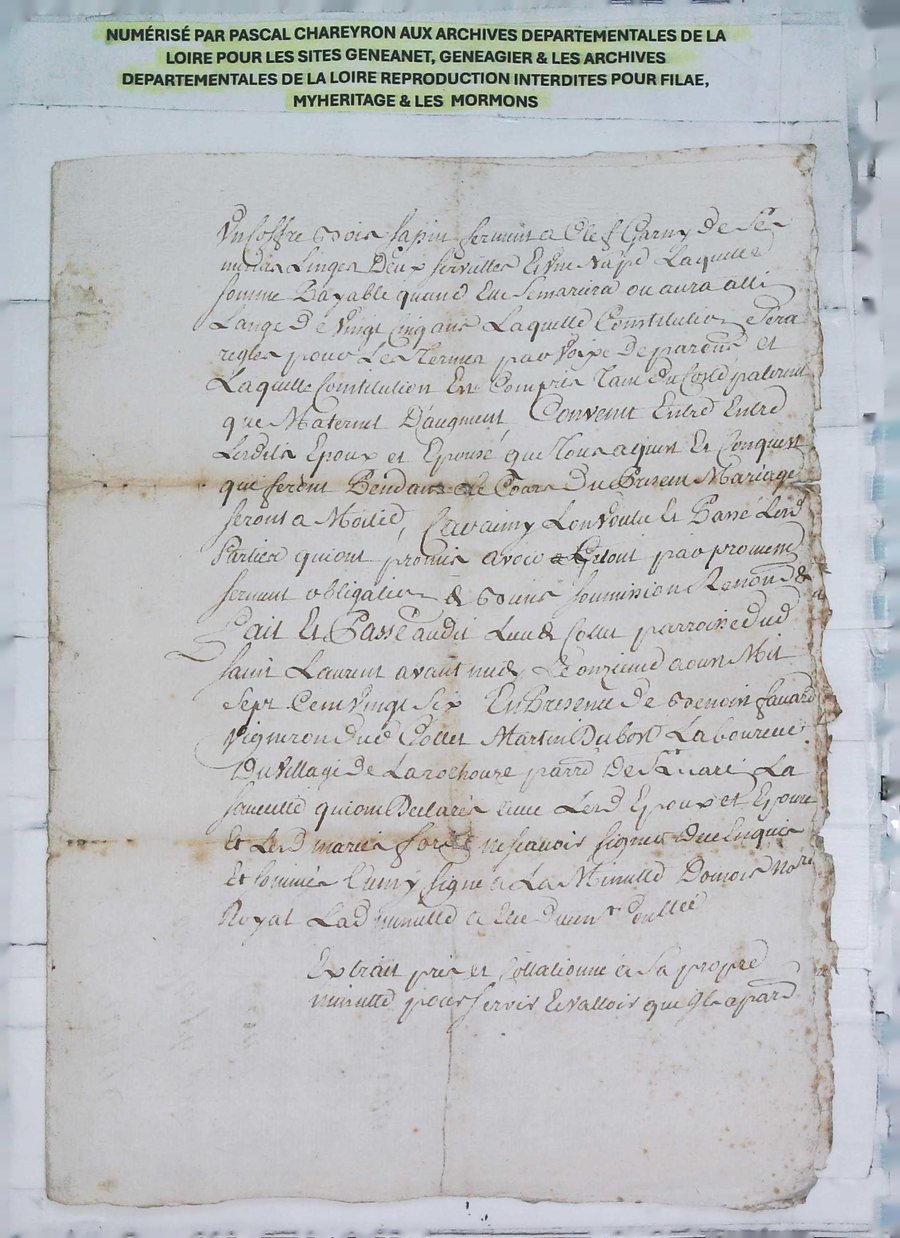 NUMÉRISÉ PAR PASCAL CHAREYRON AUX ARCHIVES DEPARTEMENTALES DE LA
LOIRE POUR LES SITES GENEANET, GENEAGIER & LES ARCHIVES
DEPARTEMENTALES DE LA LOIRE REPRODUCTION INTERDITES POUR FILAE,
MYHERITAGE & LES MORMONS
Un Coffre Bois sapin fermant a Clef Garny de Ses
menus Linges Deux serviettes Et Une Nape Laquelle
somme Payable quand Elle Semariera ou aura
Lange De Vingt Cinq ans Laquelle Constitution Sera
regles pour Les Termes par Voixe Deparans et
Laquelle Constitution Est Compris Tant Du Costé paternel
que Maternel D'augment Convenu Entre Entre
Lesdits Epoux et Epouse que Tous aquest Et Conquest
que feront Pendant Le Cours Du Present Mariage
seront a Moitié, Cavainsy Lonvoulu Et Passé Lesd
Parties quiont promis avoir par
serment obligation & soumission Renond &
Fait Et Passé audit Lieu Collet parroissedud
saint Laurent avant midy Le onzieme aoust Mil
Sept Cent Vingt Six En Presence De Benoist favard
Vigneron dud Collet Martin Dubost Laboureur
Du Village De Larochouse parre De St La
fouillouse quiont Declarés avec Lesd Epoux et Epouse
Et Lesd mariés fors nescavoir signer Dece Enquis
Et sommés Lemy signé a La Minutte Domois Nore
Royal Lad minutte a Ete
Extrait pris et Collationné a Sa propre
minutte pour servir Et valloir que